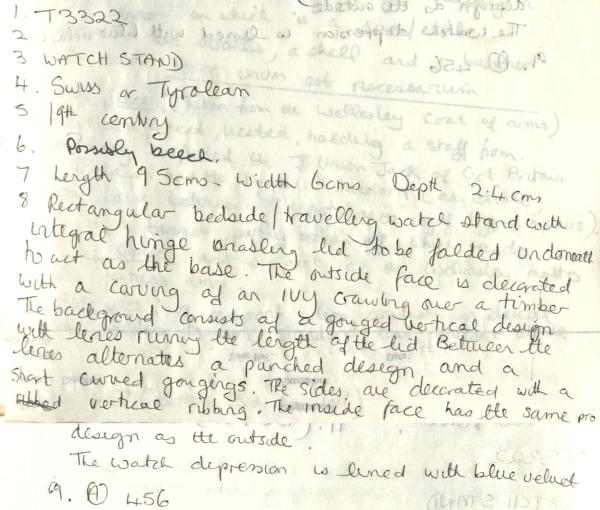 1. T3322
2
3 WATCH STAND
4. Swiss or Tyrolean
5 19th century
6. Possibly beech.
7 Length 9.5cms. Width 6cms Depth 2.4cms
8 Rectangular bedside/travelling watch stand with
integral hinge enabling lid to be folded underneath
to act as the base. The outside face is decorated
with a carving of an IVY crawling over a timber
The background consists of a gouged vertical design
with lines running the length of the lid. Between the
lines alternates a punched design, and a
short curved gougings. The sides are decorated with a
vertical ribbing. The inside face has the same pro
design as the outside.
The watch depression is lined with blue velvet
9. A 456